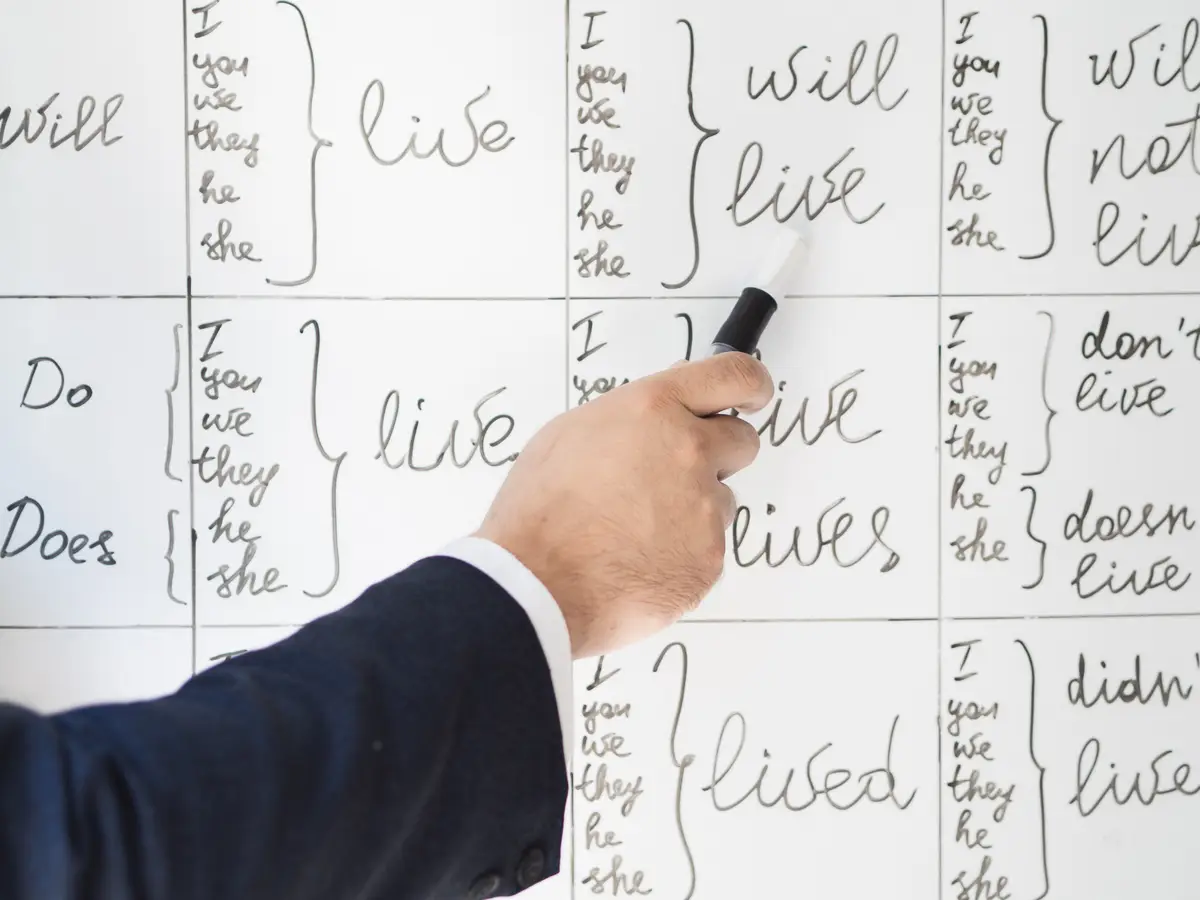 will
I
you
we
they
he
she
live
I
you
we
they
he
she
will
live
I
you
we
they
he
she
not
Do
Does
I
you
we
they
he
she
live
I
you
live
lives
I
you
we
they
he
she
don't
live
live
I
you
we
they
he
she
lived
I
you
we
they
he
she